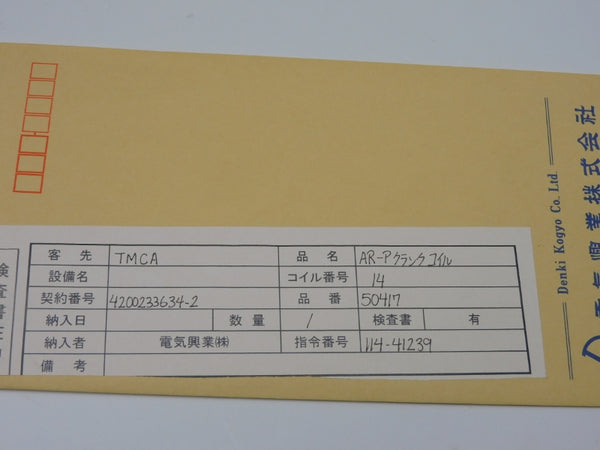 客先 TMCA 品名 AR-Pクランクコイル
設備名 コイル番号 14
契約番号 4200233634-2 品番 50417
納入日 数量 / 検査書 有
納入者 電気興業㈱ 指令番号 114-41239
備考
Denki Kogyo Co. Ltd.
電気興業株式会社
検査書在中